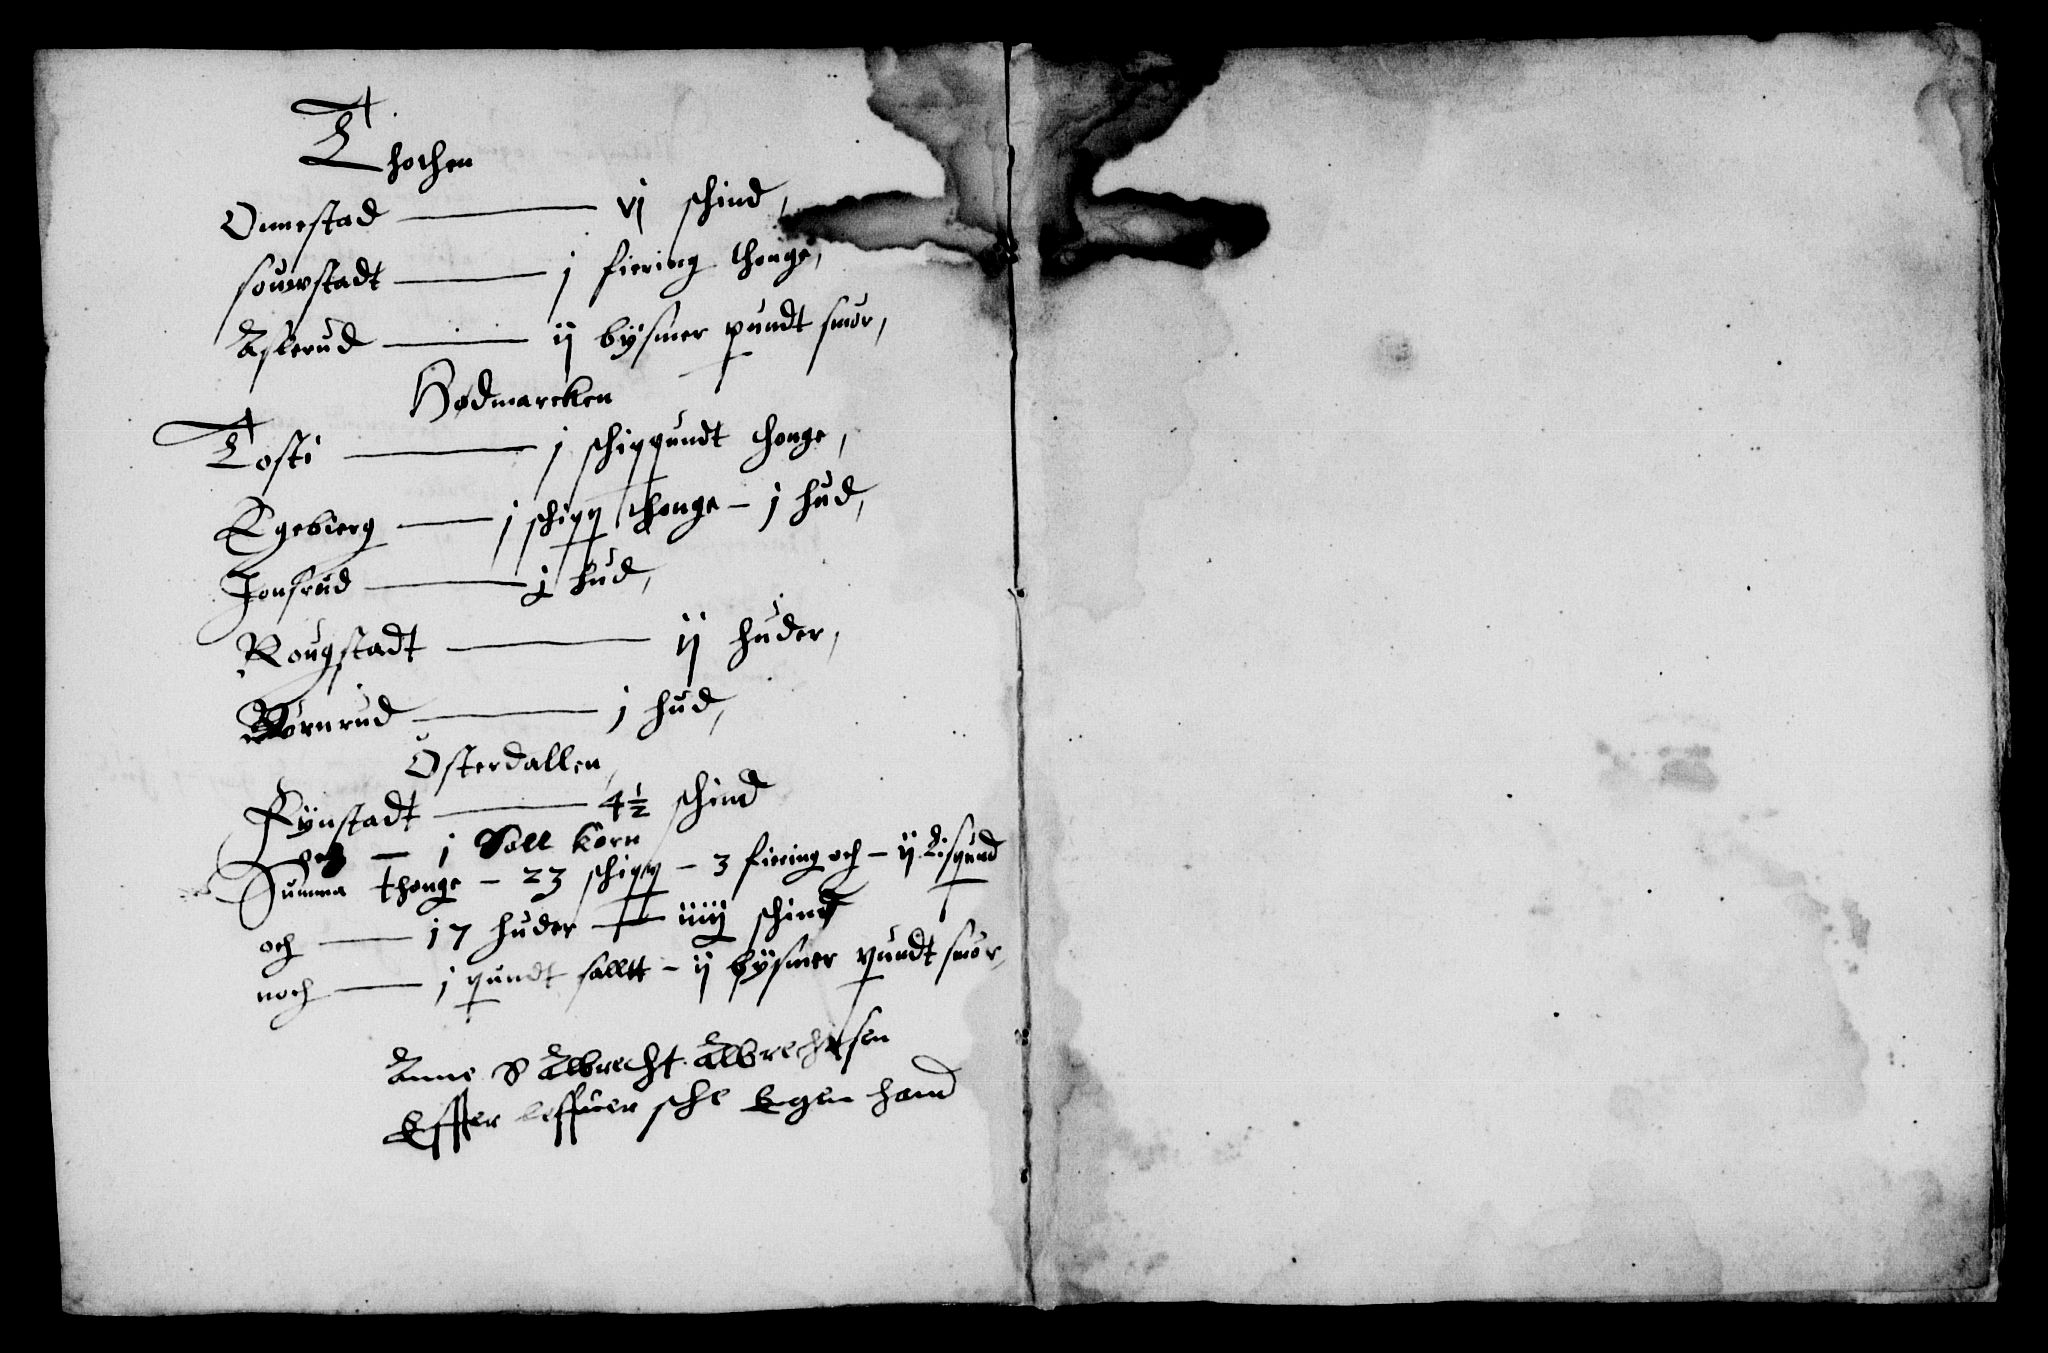 Thothen
Onnestad — vj schind,
souerstadt — j fiering thonge,
Aslerud — ij bÿsmer pundt smør,
Hødmarcken
Tosti — j schippundt thonge,
Egebierg — j schipp thonge – j hud,
Jonsrud — j hud,
Rougstadt — ij huder,
Børnrud — j hud,
Österdallen,
Rÿnstadt — 4½ schind
och — j Soll korn
Summa thonge – 23 schipp – 3 fiering och – ij Lispund
och — 17 huder — iiij schind
noch — j pundt salltt – ij bÿsmer pundt smør,
Anne S Albrecht Albrechtsen
Effter leffuer sche Egen hand